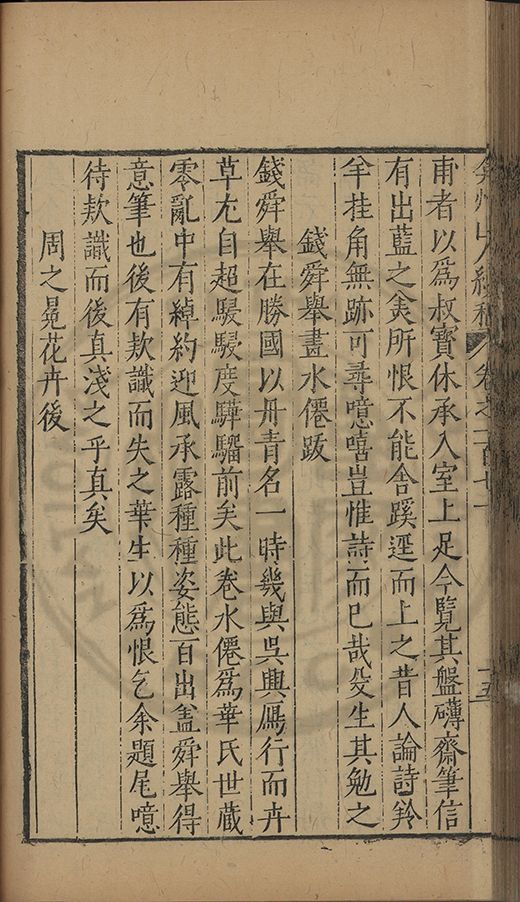 弇州山人續稿 卷之一百七十 十五
甫者以爲叔寶休承入室上足今覽其盤礴齋筆信
有出藍之美所恨不能舍蹊逕而上之昔人論詩羚
羊挂角無跡可尋噫嘻豈惟詩而已哉父生其勉之
錢舜舉畫水僊跋
錢舜舉在勝國以丹青名一時幾與吳興鴈行而卉
草尢自超駸駸度驊騮前矣此卷水僊爲華氏世藏
零亂中有綽約迎風承露種種姿態百出盖舜舉得
意筆也後有欵識而失之華生以爲恨乞余題尾噫
待欵識而後真淺之乎真矣
周之冕花卉後